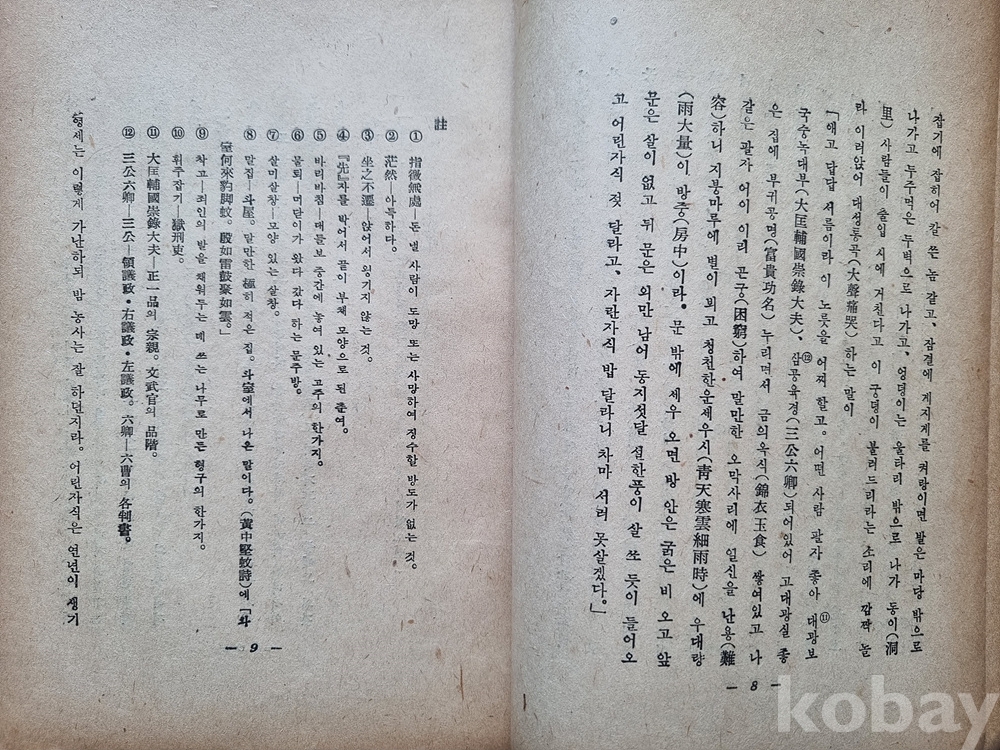 잡기에 잡히어 칼 쓴 놈 같고、잠결에 게지게를 켜랑이면 발은 마당 밖으로
나가고 누주먹은 두벽으로 나가고、엉덩이는 울타리 밖으로 나가 동이(洞
里) 사람들이 출입 시에 거친다고 이 궁덩이 불러드리라는 소리에 깜짝 놀
라 이러앉어 대성통곡(大聲痛哭) 하는 말이
「애고 답답 서름이라 이 노릇을 어찌 할고。어떤 사람 팔자 좋아 대광보⑪
국숭녹대부(大匡輔國崇錄大夫)、삼공육경⑫(三公六卿) 되어있어 고대광실 좋
은 집에 부귀공명(富貴功名) 누리면서 금의옥식(錦衣玉食) 쌓여있고 나
같은 팔자 어이 이리 곤궁(困窮)하여 말만한 오막사리에 일신을 난용(難
容)하니 지붕마루에 별이 뵈고 청천한운세우시(靑天寒雲細雨時)에 우대량
(雨大量)이 방중(房中)이라。문 밖에 세우 오면 방 안은 굵은 비 오고 앞
문은 살이 없고 뒤 문은 외만 남어 동지섯달 설한풍이 살 쏘 듯이 들어오
고 어린자식 젖 달라고、자란자식 밥 달라니 차마 서러 못살겠다。」
— 8 —
註
① 指徵無處—돈 낼 사람이 도망 또는 사망하여 징수할 방도가 없는 것。
② 茫然—아득하다。
③ 坐之不遷—앉어서 욍기지 않는 것。
④ 『先』자를 박어서 끝이 부채 모양으로 된 춘여。
⑤ 바리바침—대들보 중간에 놓여 있는 고주의 한가지。
⑥ 물퇴—머닫이가 왔다 갔다 하는 문주방。
⑦ 살미살창—모양 있는 살창。
⑧ 말집—斗屋。말만한 極히 적은 집。와室에서 나온 말이다。(黃中堅蚊詩)에 「와
室何來豹脚蚊。殷如雷鼓聚如雲。」
⑨ 착고—죄인의 발을 채워두는 데 쓰는 나무로 만든 형구의 한가지。
⑩ 휘주잡기—獄刑吏。
⑪ 大匡輔國崇錄大夫—正一品의 宗親。文武官의 品階。
⑫ 三公六卿—三公—領議政・右議政・左議政。六卿—六曹의 各判書。
형세는 이렇게 가난하되 밤 농사는 잘 하던지라。어린자식은 연년이 생기
— 9 —
kobay